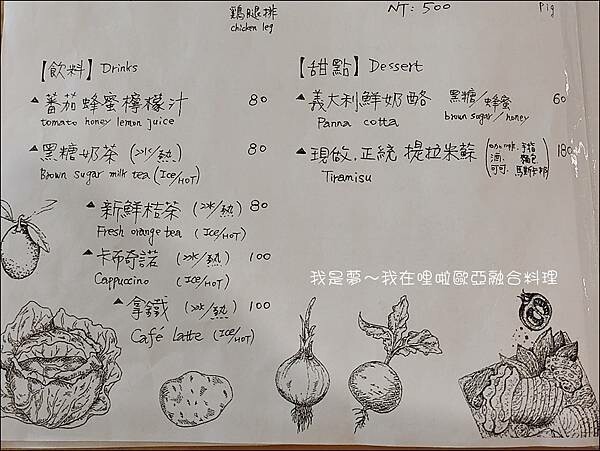 雞腿排
chicken leg
NT: 500
Pig
【飲料】Drinks
▲蕃茄蜂蜜檸檬汁 80
tomato honey lemon juice
▲黑糖奶茶 (冰/熱) 80
Brown sugar milk tea (Ice/HOT)
▲新鮮桔茶 (冰/熱) 80
Fresh orange tea (Ice/HOT)
▲卡布奇諾 (冰/熱) 100
Cappuccino (Ice/HOT)
▲拿鐵 (冰/熱) 100
Café Latte (Ice/HOT)
【甜點】Dessert
▲義大利鮮奶酪 黑糖/蜂蜜 60
Panna cotta brown sugar/honey
▲現做.正統 提拉米蘇 180
Tiramisu
手指
酒. 麵包
可可.
我是夢～我在哩啦歐亞融合料理